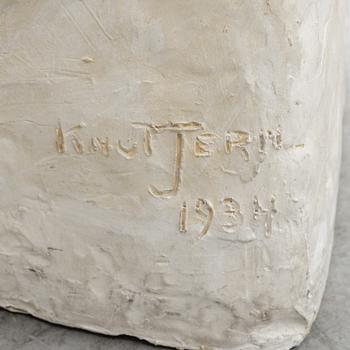 KNUT JERN
1934